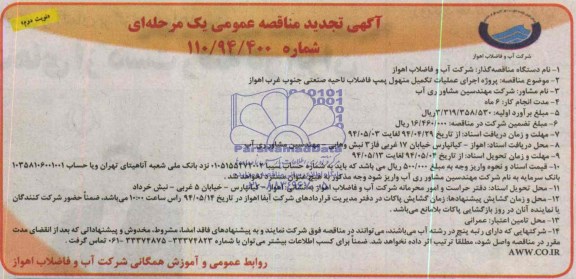 نوبت دوم
آگهی تجدید مناقصه عمومی یک مرحله‌ای
شماره ۱۱۰/۹۴/۴۰۰
شرکت آب و فاضلاب اهواز
۱- نام دستگاه مناقصه‌گذار: شرکت آب و فاضلاب اهواز
۲- موضوع مناقصه: پروژه اجرای عملیات تکمیل منهول پمپ فاضلاب ناحیه صنعتی جنوب غرب اهواز
۳- نام مشاور: شرکت مهندسین مشاور ری آب
۴- مدت انجام کار: ۶ ماه
۵- مبلغ برآورد اولیه: ۳/۳۱۹/۳۵۸/۵۳۰ ریال
۶- مبلغ تضمین شرکت در مناقصه: ۱۶/۴۶۰/۰۰۰ ریال
۷- مهلت و زمان دریافت اسناد: از تاریخ ۹۴/۰۴/۲۹ لغایت ۹۴/۰۵/۰۳
۸- محل دریافت اسناد: اهواز - کیانپارس خیابان ۱۷ غربی فاز ۲ نبش وهابی - مهندسین مشاور ری آب
۹- مهلت و زمان تحویل اسناد: از تاریخ ۹۴/۰۵/۰۴ لغایت ۹۴/۰۵/۱۳
۱۰- قیمت اسناد و نحوه واریز وجه به مبلغ ۵۰۰/۰۰۰ ریال می باشد که باید به شماره حساب سیبا ۰۱۰۵۱۵۵۴۷۲۰۰۴ نزد بانک ملی شعبه آناهیتای تهران ویا حساب ۱۰۳۵۸۱۰۶۰۰۱۰۰۱
بانک سرمایه به نام شرکت مهندسین مشاور ری آب واریز شود وجه مذکور به هیچ عنوان مسترد نخواهد شد.
۱۱- محل تحویل اسناد: دفتر حراست و امور محرمانه شرکت آب و فاضلاب اهواز به نشانی اهواز - کیانپارس - خیابان ۵ غربی - نبش خرداد
۱۲- محل و زمان گشایش پیشنهادها: زمان گشایش پاکات در دفتر مدیریت قراردادهای شرکت آبفا اهواز در تاریخ ۹۴/۰۵/۱۴ راس ساعت ۱۰:۰۰ می باشد، ضمناً حضور شرکت کنندگان
یا نماینده آنان در روز بازگشایی پاکات بلامانع می‌باشد.
۱۳- محل تامین اعتبار: عمرانی
۱۴- شرکتهایی که دارای رتبه پنج در رشته آب می‌باشند، می‌توانند در مناقصه فوق شرکت نمایند و به پیشنهادهای فاقد امضا، مشروط، مخدوش و پیشنهاداتی که بعد از انقضای مدت
مقرر در مناقصه واصل شود، مطلقا ترتیب اثر داده نخواهد شد. ضمنا برای کسب اطلاعات بیشتر می توان با شماره ۳۳۳۷۴۸۲۳ - ۳۳۳۷۴۸۷۵-۰۶۱ تماس گرفت.
AWW.CO.IR
روابط عمومی و آموزش همگانی شرکت آب و فاضلاب اهواز